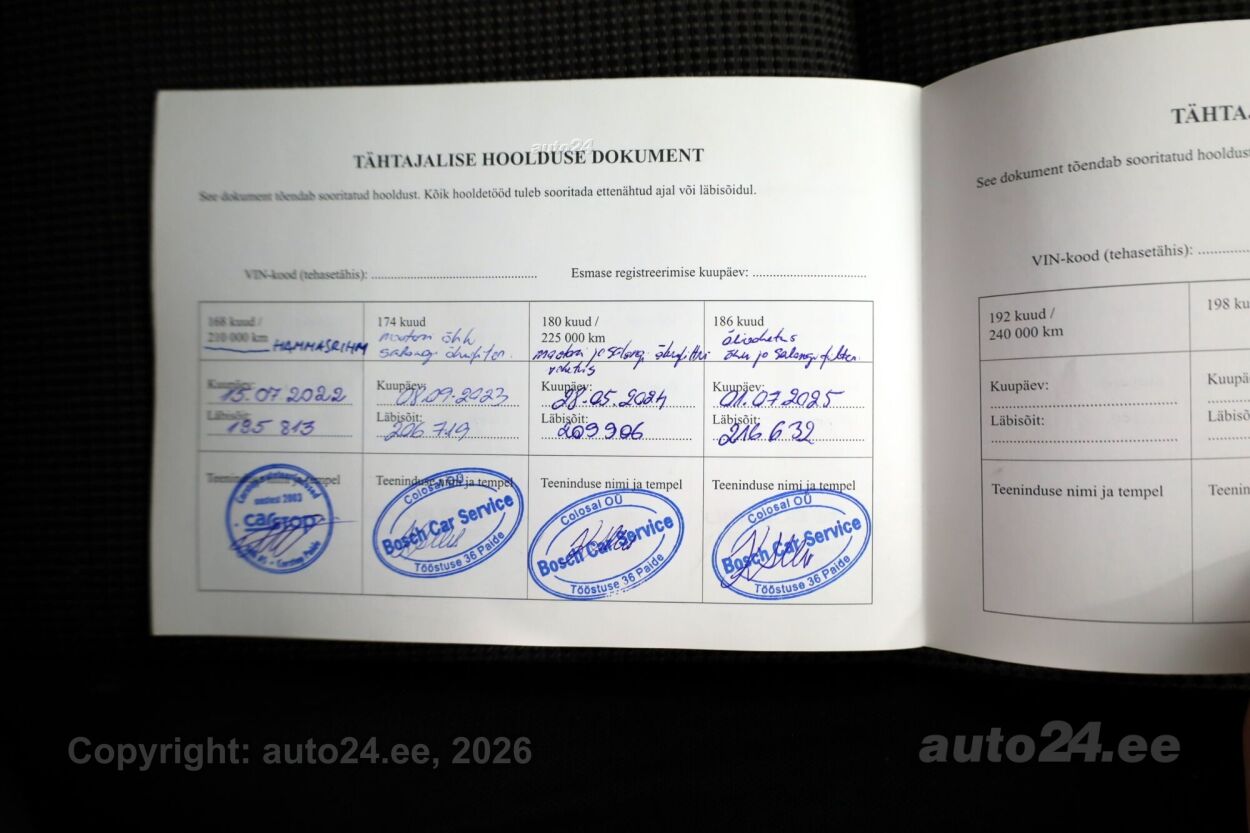 auto24
TÄHTAJALISE HOOLDUSE DOKUMENT
See dokument tõendab sooritatud hooldust. Kõik hooldetööd tuleb sooritada ettenähtud ajal või läbisõidul.
VIN-kood (tehasetähis):
Esmase registreerimise kuupäev:
168 kuud /
210 000 km HAMMASRIHM
Kuupäev:
15.07 2022
Läbisõit:
195 813
Teeninduse nimi ja tempel
aastast 2003
carstop
174 kuud
mootori õhk
salongi õhufilter.
Kuupäev:
08.09.2023
Läbisõit:
206 719
Teeninduse nimi ja tempel
Colosal OÜ
Bosch Car Service
Tööstuse 36 Paide
180 kuud /
225 000 km
mootori ja salongi õhufiltri
vahetus
Kuupäev:
28.05.2024
Läbisõit:
209906
Teeninduse nimi ja tempel
Colosal OÜ
Bosch Car Service
Tööstuse 36 Paide
186 kuud
õlivahetus
õhu ja salongi filter.
Kuupäev:
01.07.2025
Läbisõit:
216.632
Teeninduse nimi ja tempel
Colosal OÜ
Bosch Car Service
Tööstuse 36 Paide
TÄHTA
See dokument tõendab sooritatud hooldust
VIN-kood (tehasetähis):
192 kuud /
240 000 km
Kuupäev:
Läbisõit:
Teeninduse nimi ja tempel
198 ku
Kuupä
Läbisõ
Teenin
Copyright: auto24.ee, 2026
auto24.ee